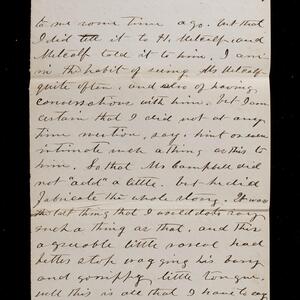 to me some time ago. but that
I did tell it to H. Metcalf, and
Metcalf told it to him. I am
in the habit of seeing Mr Metcalf
quite often, and also of having
conversations with him. but I am
certain that I did not at any
time mention, say, hint or even
intimate such a thing as this to
him. So that Mr Campbell did
not "add" a little. but he did
fabricate the whole story. It was
the last thing that I would do to say
such a thing as that, and this
agreeable little rascal had
better stop wagging his busy
and gossippy little tongue.
well this is all that I have to say